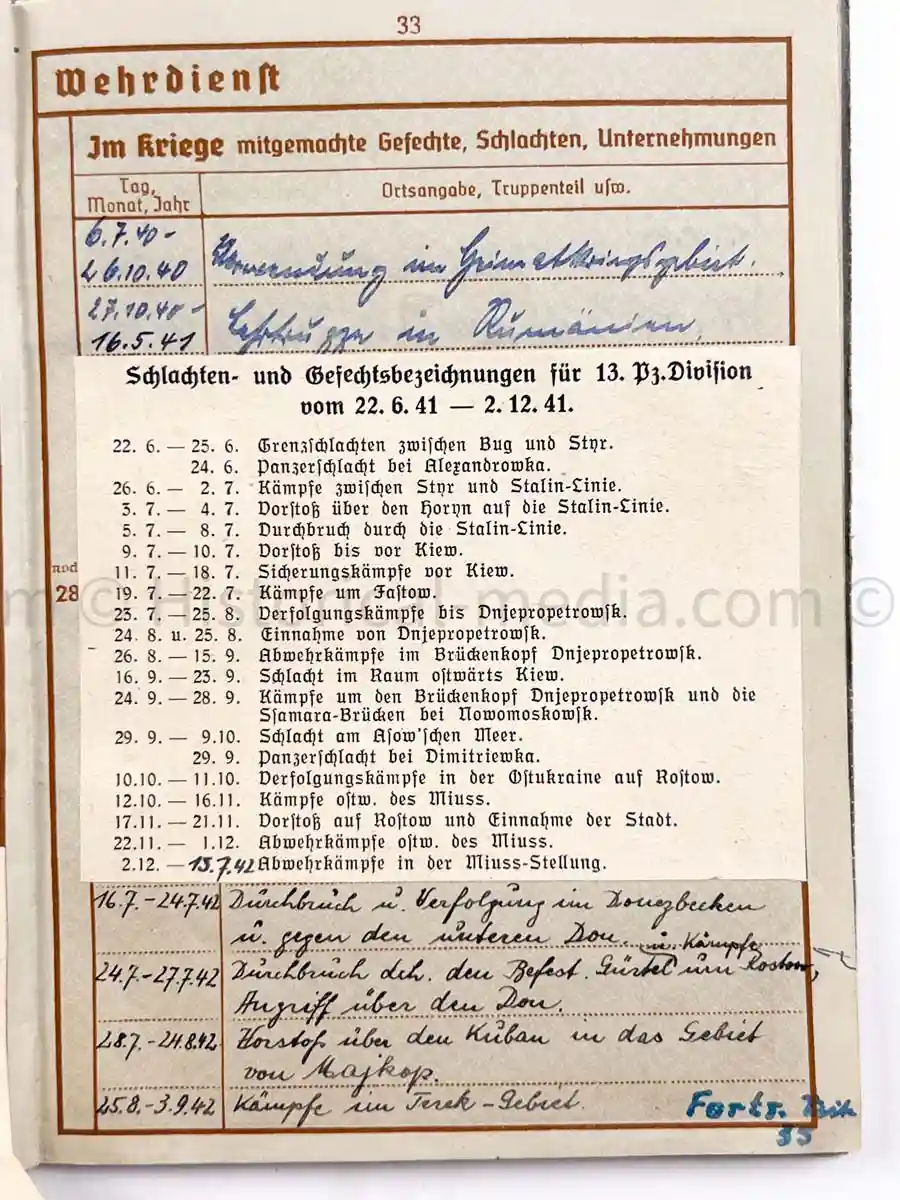 33
Wehrdienst
Im Kriege mitgemachte Gefechte, Schlachten, Unternehmungen
Tag, Monat, Jahr
Ortsangabe, Truppenteil usw.
6.7.40 -
26.10.40 Verwendung im Heimatkriegsgebiet.
27.10.40 -
16.5.41 Lehrtruppe in Rumänien,
Schlachten- und Gefechtsbezeichnungen für 13. Pz.Division
vom 22. 6. 41 — 2. 12. 41.
22. 6. — 25. 6. Grenzschlachten zwischen Bug und Styr.
24. 6. Panzerschlacht bei Alexandrowka.
26. 6. — 2. 7. Kämpfe zwischen Styr und Stalin-Linie.
3. 7. — 4. 7. Vorstoß über den Horyn auf die Stalin-Linie.
5. 7. — 8. 7. Durchbruch durch die Stalin-Linie.
9. 7. — 10. 7. Vorstoß bis vor Kiew.
11. 7. — 18. 7. Sicherungskämpfe vor Kiew.
19. 7. — 22. 7. Kämpfe um Fastow.
23. 7. — 25. 8. Verfolgungskämpfe bis Dnjepropetrowsk.
24. 8. u. 25. 8. Einnahme von Dnjepropetrowsk.
26. 8. — 15. 9. Abwehrkämpfe im Brückenkopf Dnjepropetrowsk.
16. 9. — 23. 9. Schlacht im Raum ostwärts Kiew.
24. 9. — 28. 9. Kämpfe um den Brückenkopf Dnjepropetrowsk und die
Ssamara-Brücken bei Nowomoskowsk.
29. 9. — 9.10. Schlacht am Asow'schen Meer.
29. 9. Panzerschlacht bei Dimitriewka.
10.10. — 11.10. Verfolgungskämpfe in der Ostukraine auf Rostow.
12.10. — 16.11. Kämpfe ostw. des Miuss.
17.11. — 21.11. Vorstoß auf Rostow und Einnahme der Stadt.
22.11. — 1.12. Abwehrkämpfe ostw. des Miuss.
2.12. — 15.7.42 Abwehrkämpfe in der Miuss-Stellung.
noch
28
16.7. - 24.7.42 Durchbruch u. Verfolgung im Donezbecken
u. gegen den unteren Don.
u. Kämpfe
24.7. - 27.7.42 Durchbruch dch. den Befest. Gürtel um Rostow,
Angriff über den Don.
28.7. - 24.8.42 Vorstoß über den Kuban in das Gebiet
von Majkop.
25.8. - 3.9.42 Kämpfe im Terek-Gebiet.
Forts.
35
m © Historical-media.com ©